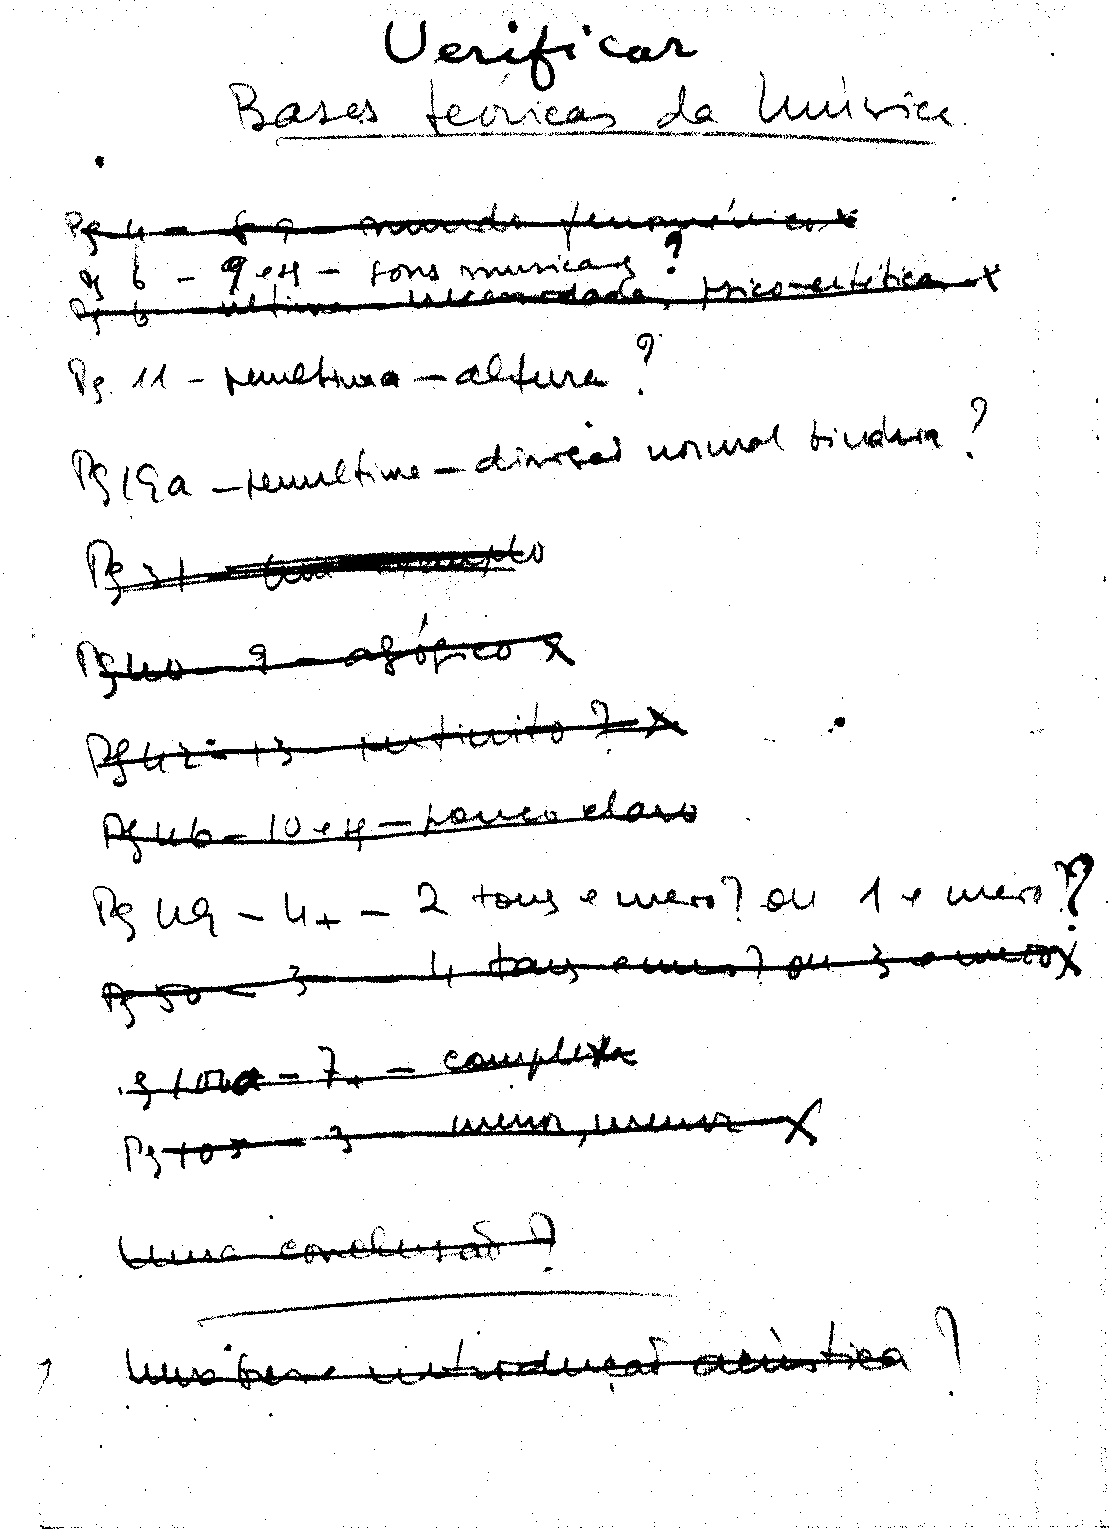 Verificar
Bases teóricas da Música
Pg 4 - 8 9 - mundo fenoménico x
Pg 6 - 9 e 4 - sons musicais ?
Pg 6 - última - psico-estética x
Pg. 11 - penultima - altura ?
Pg 19a - penultima - divisão normal binária ?
Pg 31 - exemplo
Pg 40 - 9 - agógico x
Pg 42 - 13 - ?  x
Pg 46 - 10 e 4 - pouco claro
Pg 49 - 4+ - 2 tons e meio? ou 1 e meio??
Pg 50 - 3 - 4 tons e meio? ou 3 e meio x
Pg 102a - 7+ - complexa
Pg 103 - 3 - menor, menor x
Uma conclusão ?
Uma breve introdução acústica ?